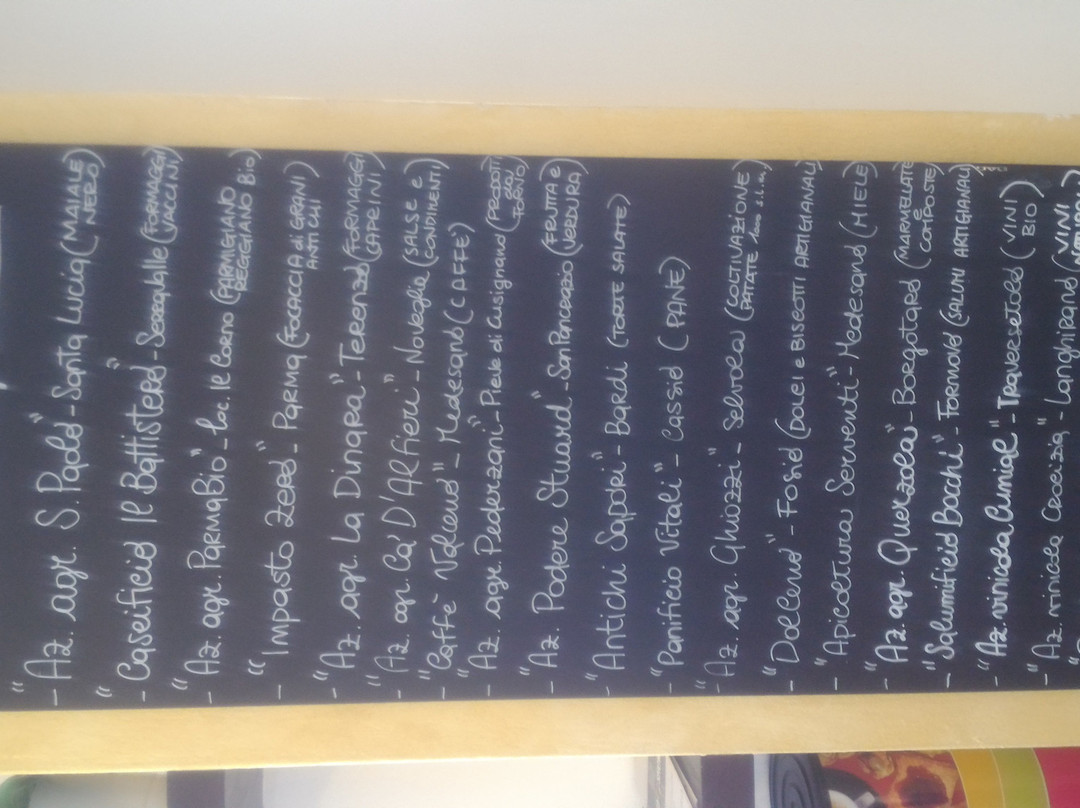 - "Az. agr. S. Paolo" - Santa Lucia (MAIALE NERO)
- "Caseificio Il Battistero" - Serravalle (FORMAGGI VACCINI)
- "Az. agr. PARMABio" - Loc. Il Corno (PARMIGIANO REGGIANO Bio)
- "Impasto Zero" - PARMA (FOCACCIA di GRANI ANTICHI)
- "Az. agr. La Dinara" - Terenzo (FORMAGGI CAPRINI)
- "Az. agr. Ca' D'Alfieri" - Noveglia (SALSE e CONDIMENTI)
- "Caffè - Medesano (CAFFE')
- "Az. agr. Pederzani" - Pieve di Cusignano (PRODOTTI DEL FORNO)
- "Az. Podere Stuard" - San Pancrazio (FRUTTA e VERDURA)
- "Antichi Sapori" - Bardi (TORTE SALATE)
- "Panificio Vitali" - Cassio (PANE)
- "Az. agr. Ghiozzi" - Selvola (COLTIVAZIONE PATATE 1000 s.l.m.)
- "Dolceno" - Fosio (DOLCI e BISCOTTI ARTIGIANALI
- "Apicoltura Serventi" - Medesano (MIELE)
- "Az. agr. Querzola" - Borgotaro (MARMELLATE e COMPOSTE)
- "Salumificio Bocchi" - FORNOVO (SALUMI ARTIGIANALI)
- "Az. vinicola Cunial" - Traversetolo (VINI BIO)
- "Az. vinicola Crocizia" - Langhirano (VINI